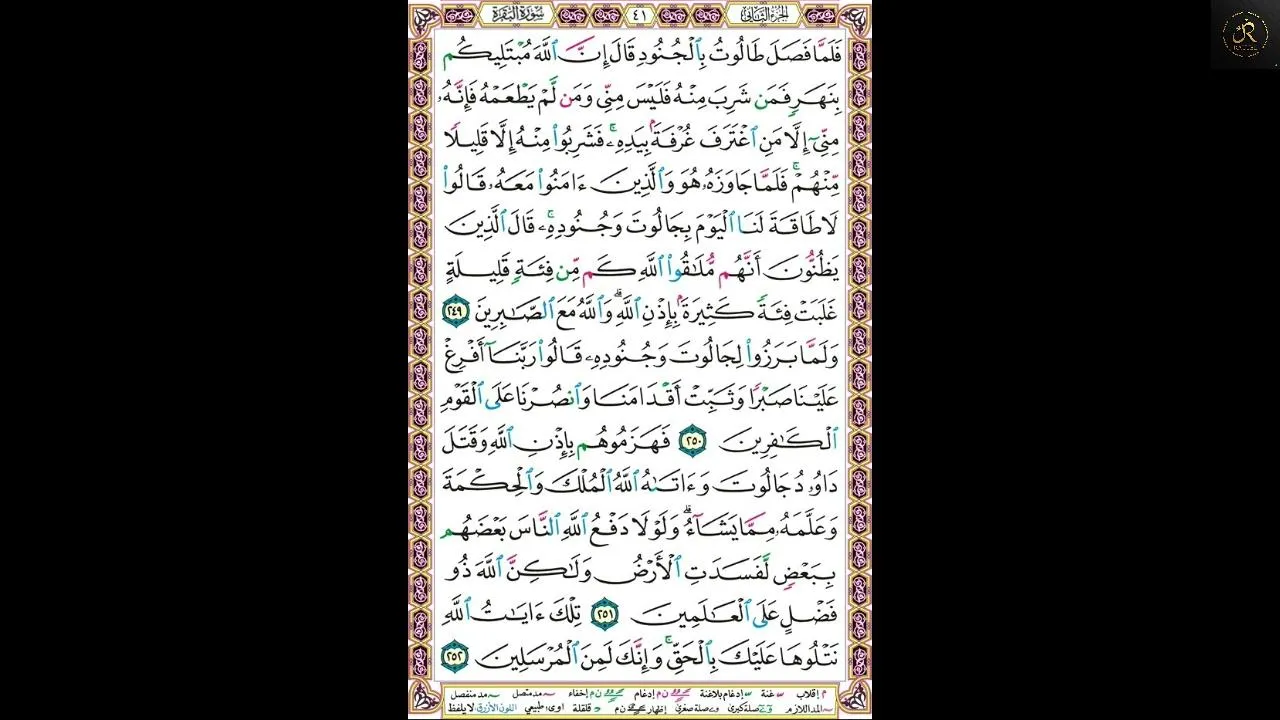 سُورَةُ البَقَرَة ٤١ الجُزءُ الثَّانِي
فَلَمَّا فَصَلَ طَالُوتُ بِٱلْجُنُودِ قَالَ إِنَّ ٱللَّهَ مُبْتَلِيكُم
بِنَهَرٍ فَمَن شَرِبَ مِنْهُ فَلَيْسَ مِنِّى وَمَن لَّمْ يَطْعَمْهُ فَإِنَّهُۥ
مِنِّىٓ إِلَّا مَنِ ٱغْتَرَفَ غُرْفَةَۢ بِيَدِهِۦۚ فَشَرِبُوا۟ مِنْهُ إِلَّا قَلِيلًا
مِّنْهُمْۚ فَلَمَّا جَاوَزَهُۥ هُوَ وَٱلَّذِينَ ءَامَنُوا۟ مَعَهُۥ قَالُوا۟
لَا طَاقَةَ لَنَا ٱلْيَوْمَ بِجَالُوتَ وَجُنُودِهِۦۚ قَالَ ٱلَّذِينَ
يَظُنُّونَ أَنَّهُم مُّلَـٰقُوا۟ ٱللَّهِ كَم مِّن فِئَةٍ قَلِيلَةٍ
غَلَبَتْ فِئَةً كَثِيرَةَۢ بِإِذْنِ ٱللَّهِۗ وَٱللَّهُ مَعَ ٱلصَّـٰبِرِينَ ٢٤٩
وَلَمَّا بَرَزُوا۟ لِجَالُوتَ وَجُنُودِهِۦ قَالُوا۟ رَبَّنَآ أَفْرِغْ
عَلَيْنَا صَبْرًا وَثَبِّتْ أَقْدَامَنَا وَٱنصُرْنَا عَلَى ٱلْقَوْمِ
ٱلْكَـٰفِرِينَ ٢٥٠ فَهَزَمُوهُم بِإِذْنِ ٱللَّهِ وَقَتَلَ
دَاوُۥدُ جَالُوتَ وَءَاتَىٰهُ ٱللَّهُ ٱلْمُلْكَ وَٱلْحِكْمَةَ
وَعَلَّمَهُۥ مِمَّا يَشَآءُۗ وَلَوْلَا دَفْعُ ٱللَّهِ ٱلنَّاسَ بَعْضَهُم
بِبَعْضٍ لَّفَسَدَتِ ٱلْأَرْضُ وَلَـٰكِنَّ ٱللَّهَ ذُو
فَضْلٍ عَلَى ٱلْعَـٰلَمِينَ ٢٥١ تِلْكَ ءَايَـٰتُ ٱللَّهِ
نَتْلُوهَا عَلَيْكَ بِٱلْحَقِّۚ وَإِنَّكَ لَمِنَ ٱلْمُرْسَلِينَ ٢٥٢
م إقلاب غنة إدغام بلاغنة ن م إدغام ن م إخفاء مد متصل مد منفصل
المد اللازم صلة كبرى صلة صغرى إظهار ن م قلقلة اوى طبيعي اللون الأزرق لا يلفظ